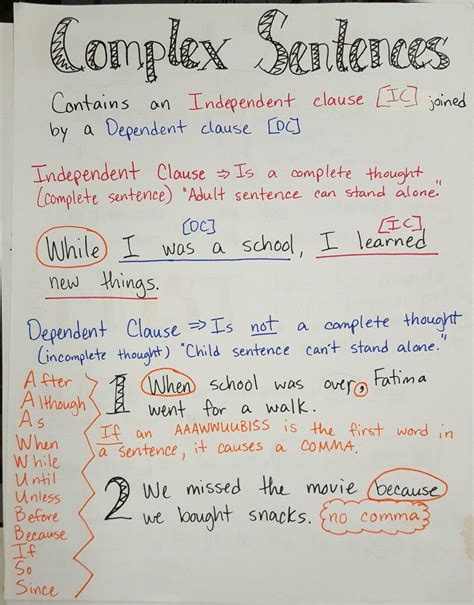 Complex Sentences
Contains an Independent clause [IC] joined
by a Dependent clause [DC]
Independent Clause ⇒ Is a complete thought
(complete sentence) "Adult sentence can stand alone."
[DC] [IC]
While I was a school, I learned
new things.
Dependent Clause ⇒ Is not a complete thought
(incomplete thought) "Child sentence can't stand alone."
After
Although
As
When
While
Until
Unless
Before
Because
If
So
Since
1 When school was over, Fatima
went for a walk.
If an AAAWWUUBISS is the first word in
a sentence, it causes a COMMA.
2 We missed the movie because
we bought snacks. {no comma}